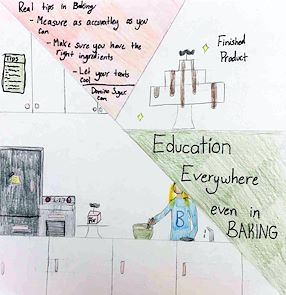 Real tips in Baking:
- Measure as accuratley as you
can
- Make sure you have the
right ingredients
- Let your treats
cool
Domino Sugar
.com
TIPS
Finished
Product
Education
Everywhere
even in
BAKING
B